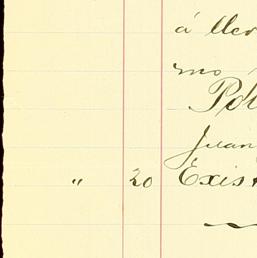 á llev
mo
Juan
" 20 Exis